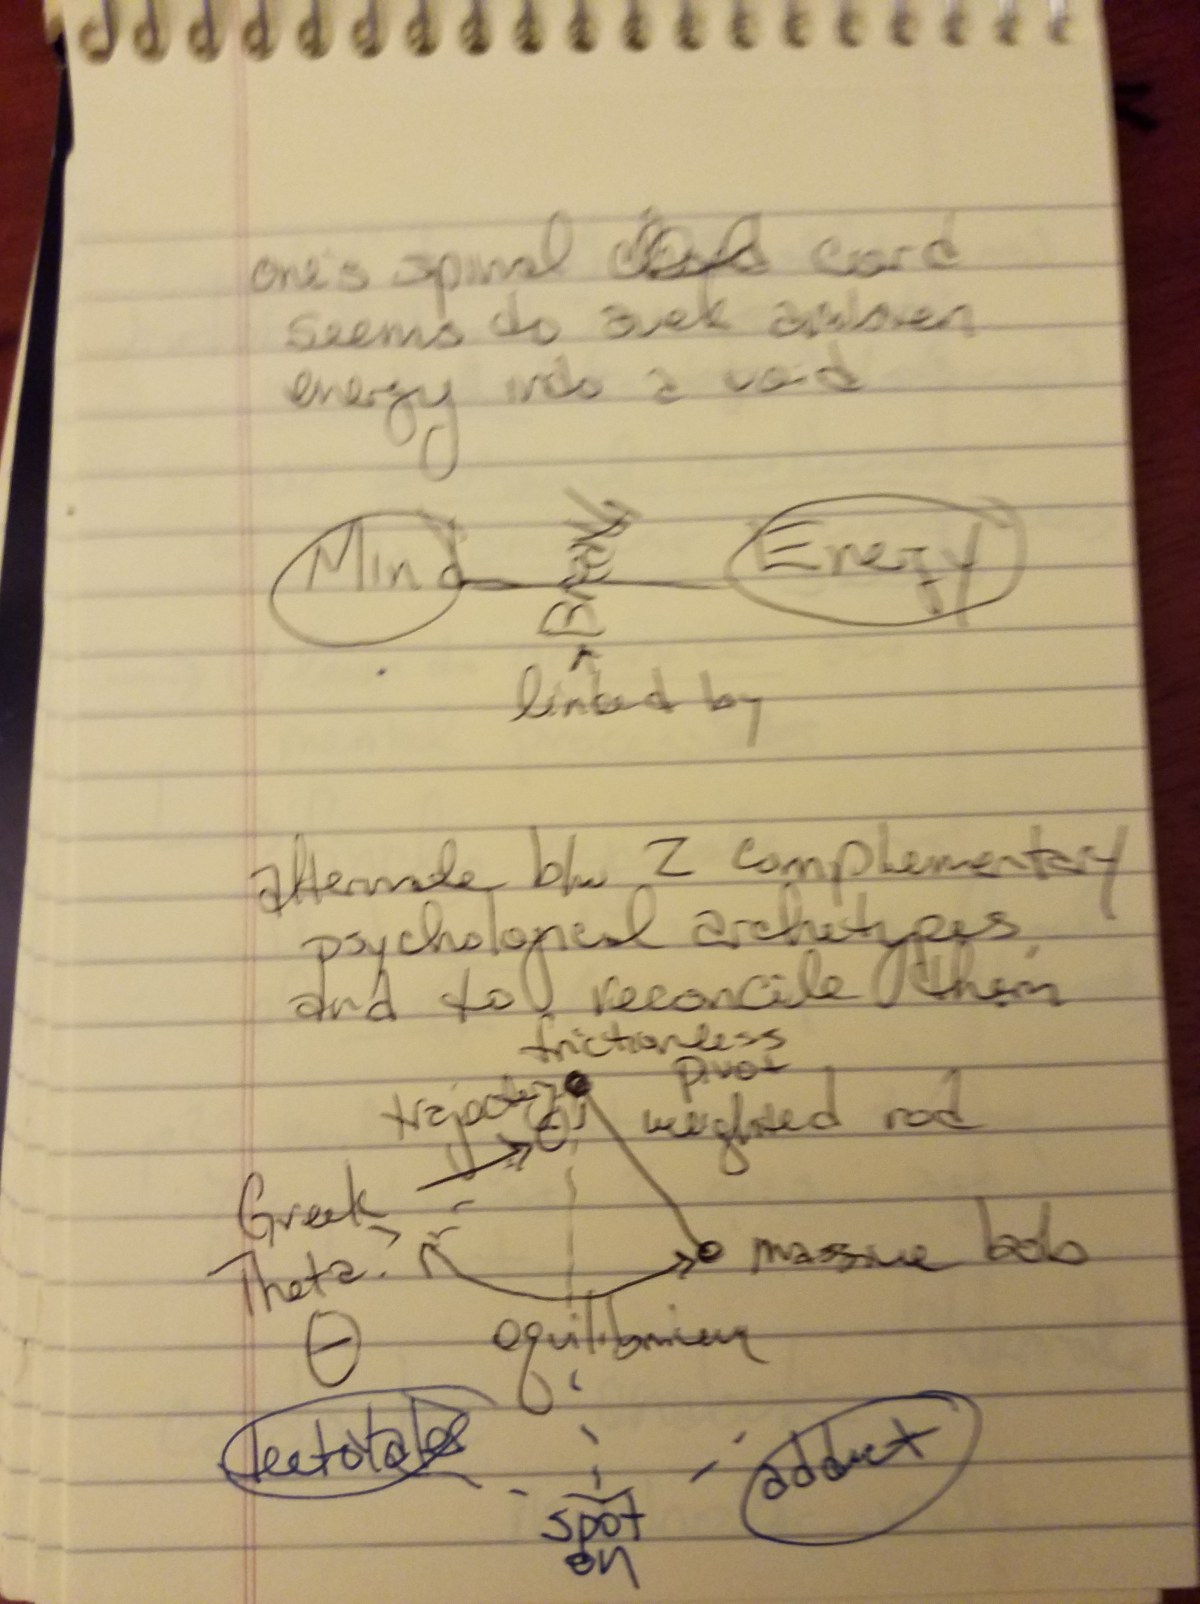 one's spinal cord
seems to suck
energy into a void
Mind
Energy
linked by
alternate b/w 2 complementary
psychological archetypes
and to reconcile them
frictionless
pivot
trajectory
weighted rod
Greek
Theta:
θ
massive bob
equilibrium
adduct
spot
on